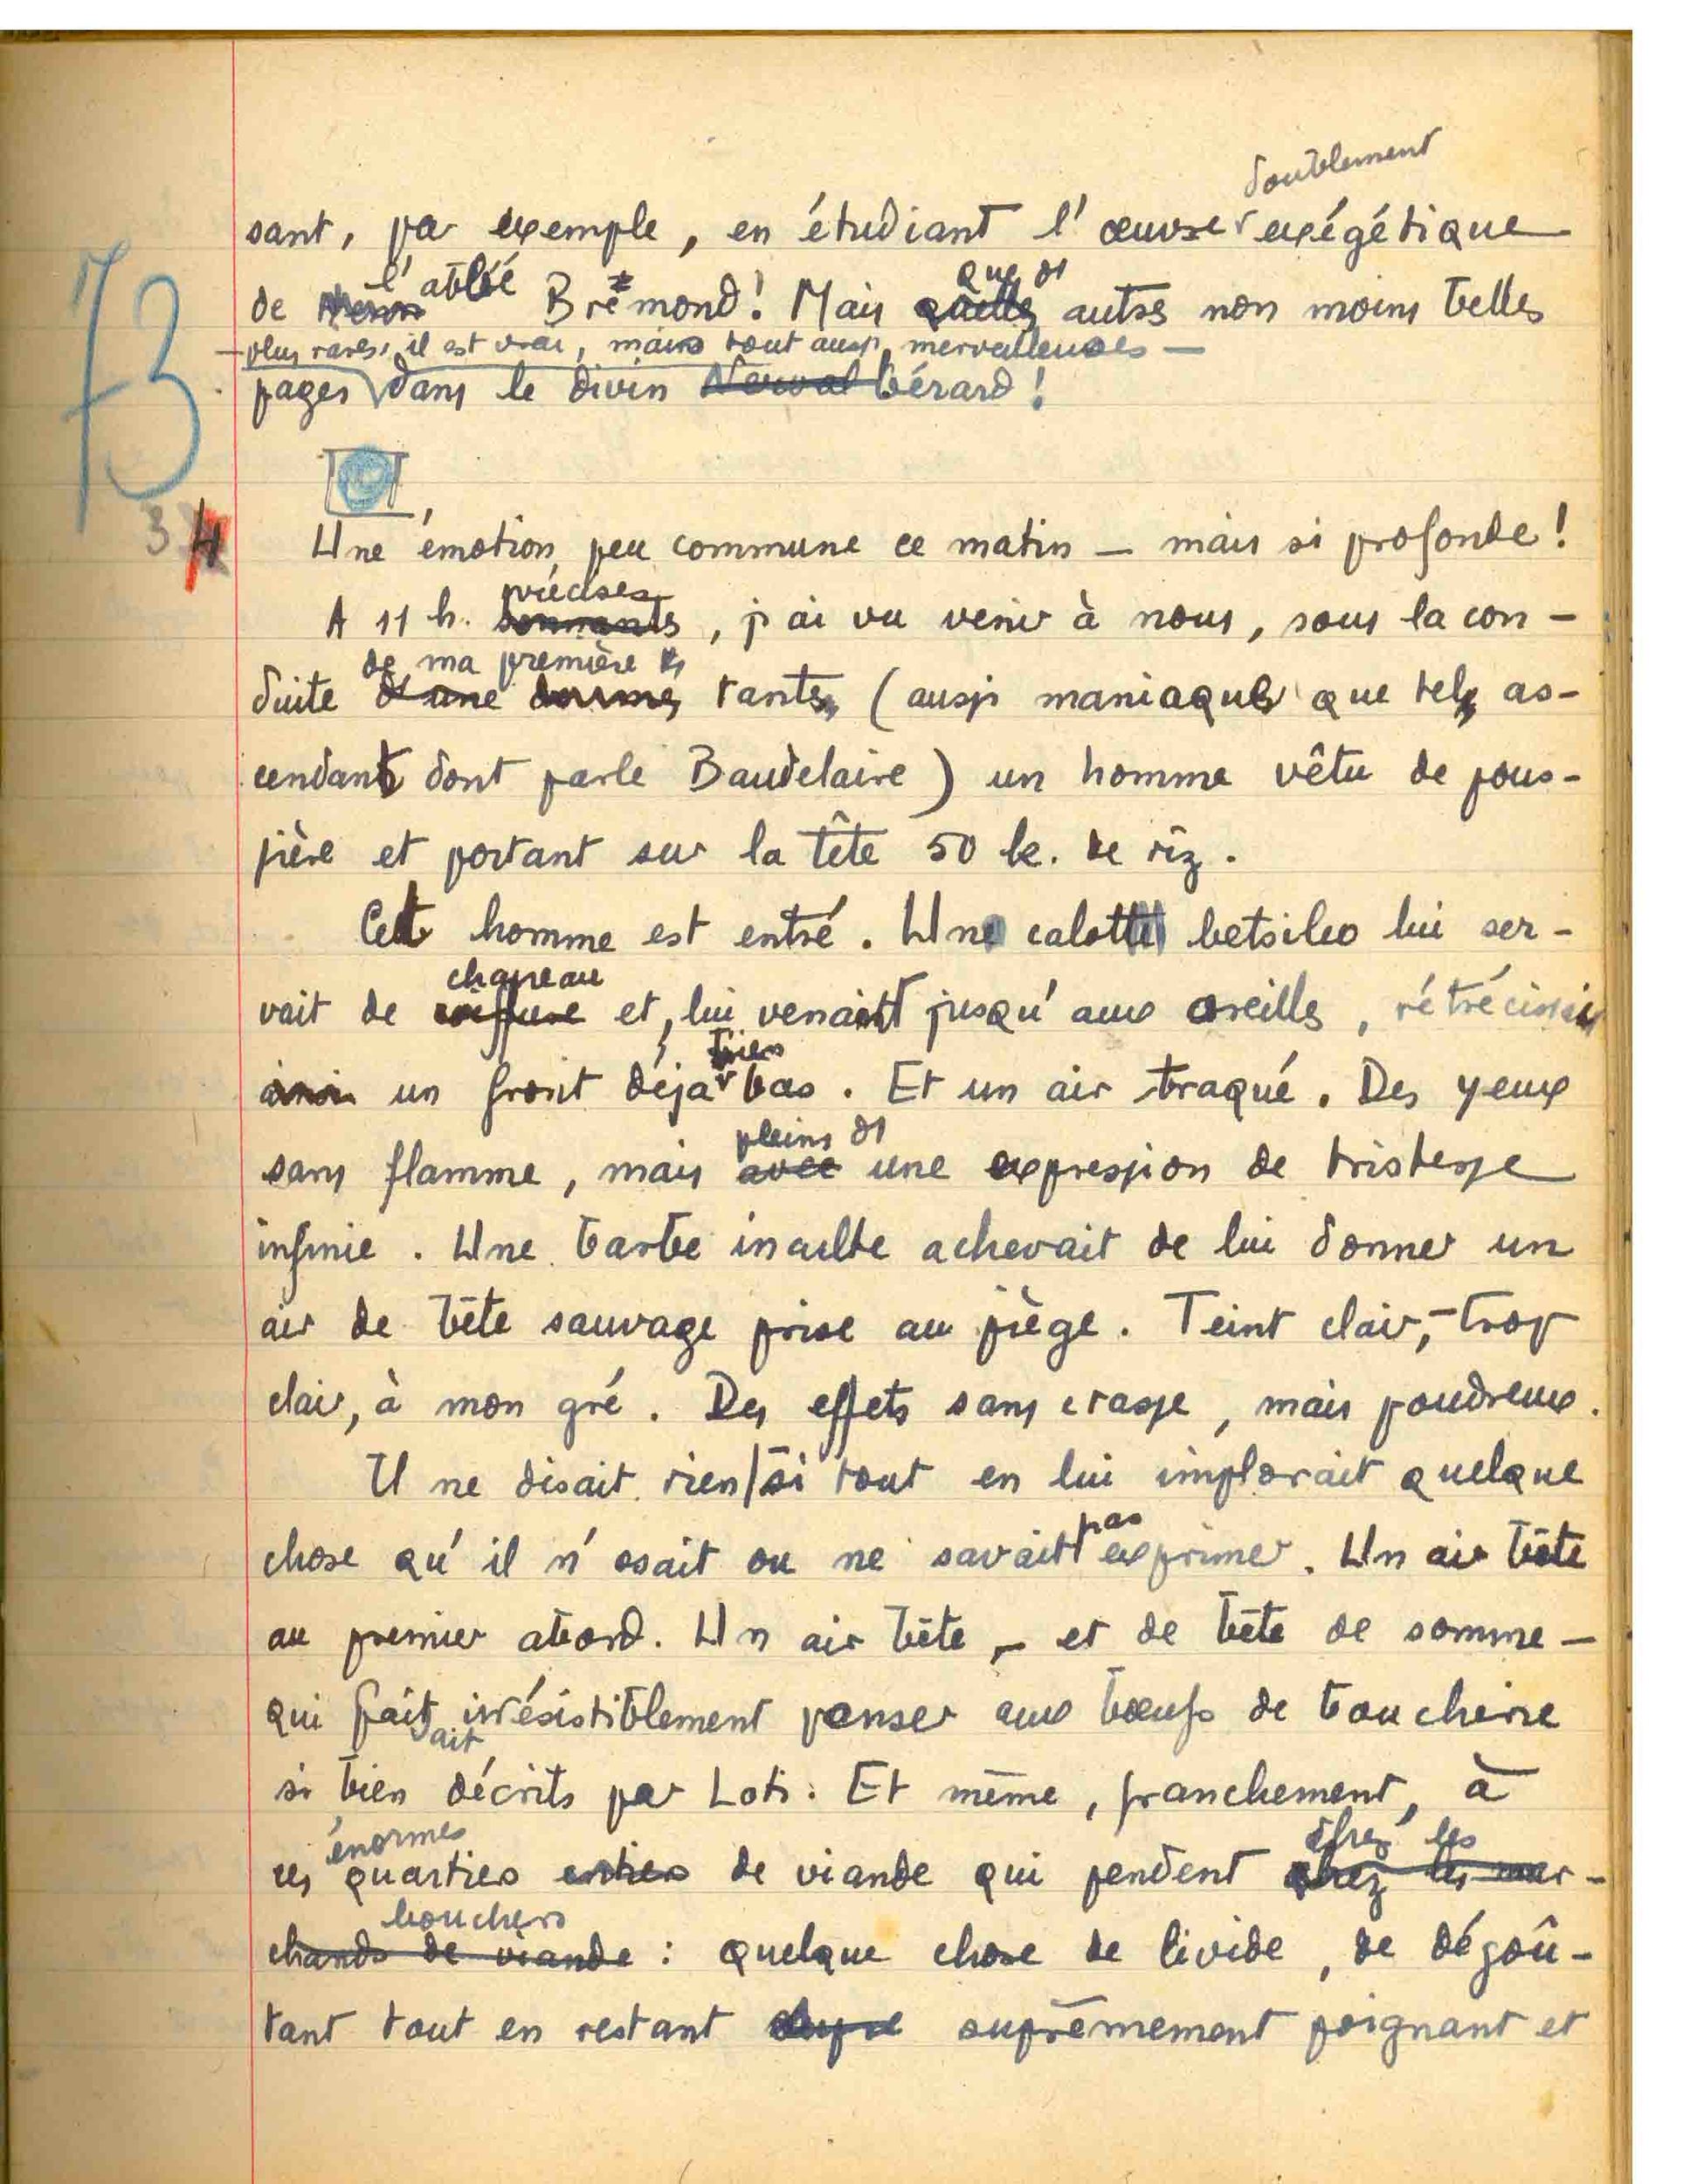 doublement
sant, par exemple, en étudiant l'œuvre exégétique
l'abbé que d'
de Brémond! Mais quelles autres non moins belles
— plus rares, il est vrai, mais tout aussi merveilleuses —
pages dans le divin Nerval Gérard!
73
34
Une émotion peu commune ce matin — mais si profonde!
précises
A 11 h. sonnants, j'ai vu venir à nous, sous la con-
de ma première
duite d'une tante (aussi maniaque que tel as-
cendant dont parle Baudelaire) un homme vêtu de pous-
sière et portant sur la tête 50 k. de riz.
Cet homme est entré. Une calotte betsileo lui ser-
chapeau
vait de coiffure et, lui venant jusqu'aux oreilles, rétrécissait
bien
ainsi un front déjà bas. Et un air traqué. Des yeux
pleins d'
sans flamme, mais avec une expression de tristesse
infinie. Une barbe inculte achevait de lui donner un
air de bête sauvage prise au piège. Teint clair, — trop
clair, à mon gré. Des effets sans crasse, mais poudreux.
Il ne disait rien si tout en lui implorait quelque
pas
chose qu'il n'osait ou ne savait exprimer. Un air bête
au premier abord. Un air bête, — et de bête de somme —
qui fait irrésistiblement penser aux bœufs de boucherie
ait
si bien décrits par Loti. Et même, franchement, à
énormes chez les
ces quartiers entiers de viande qui pendent chez les mar-
bouchers
chands de viande : quelque chose de livide, de dégoû-
tant tout en restant suprêmement poignant et